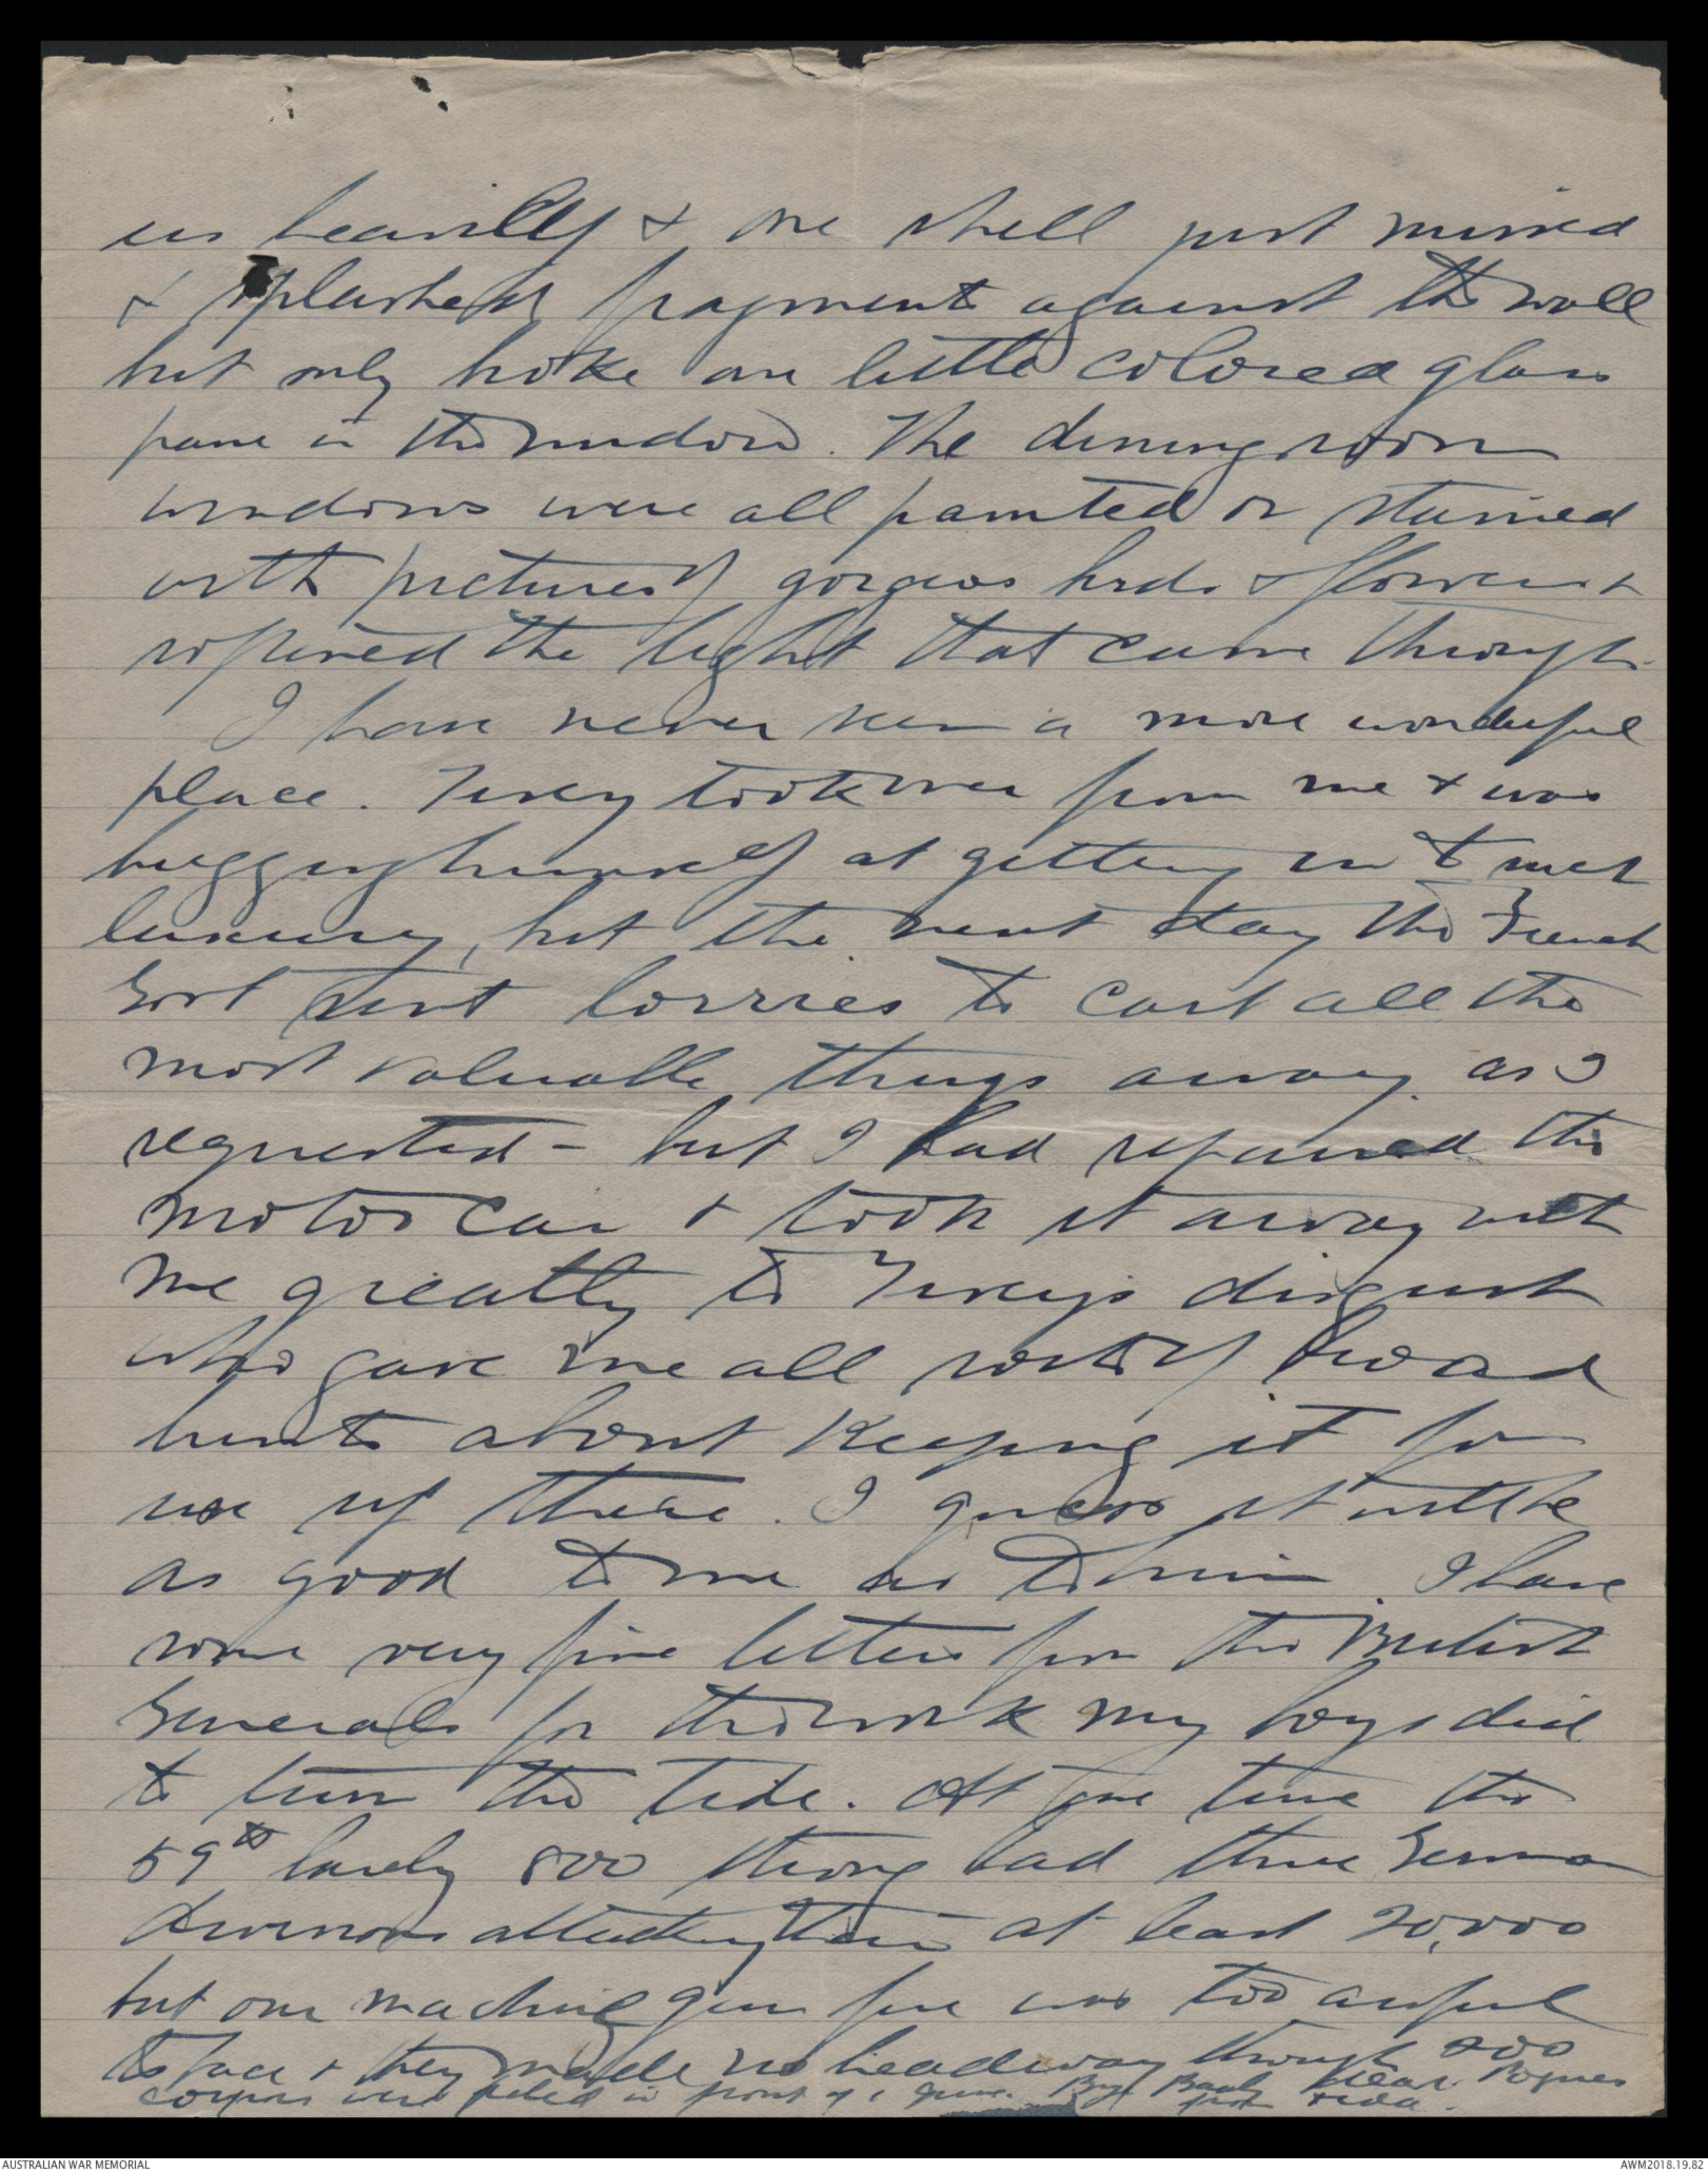 us heavily & one shell just missed
& splashed fragments against the wall
but only broke one little colored glass
pane in the window. The dining room
windows were all painted or stained
with pictures of gorgeous birds & flowers &
softened the light that came through.
I have never seen a more wonderful
place. Tivey took over from me & was
hugging himself at getting in to such
luxury, but the next day the French
Govt sent lorries to cart all the
most valuable things away as I
requested - but I had repaired the
motor car & took it away with
me greatly to Tivey's disgust
who gave me all sorts of broad
hints about keeping it for
use up there. I guess it will be
as good to me as to him. I have
some very fine letters from the British
Generals for the work my boys did
to turn the tide. At one time the
59th barely 800 strong had three German
divisions attacking them at least 20,000
but our machine gun fire was too awful
to face & they made no headway though 200
corpses were piled in front of 1 gun. near Pogues